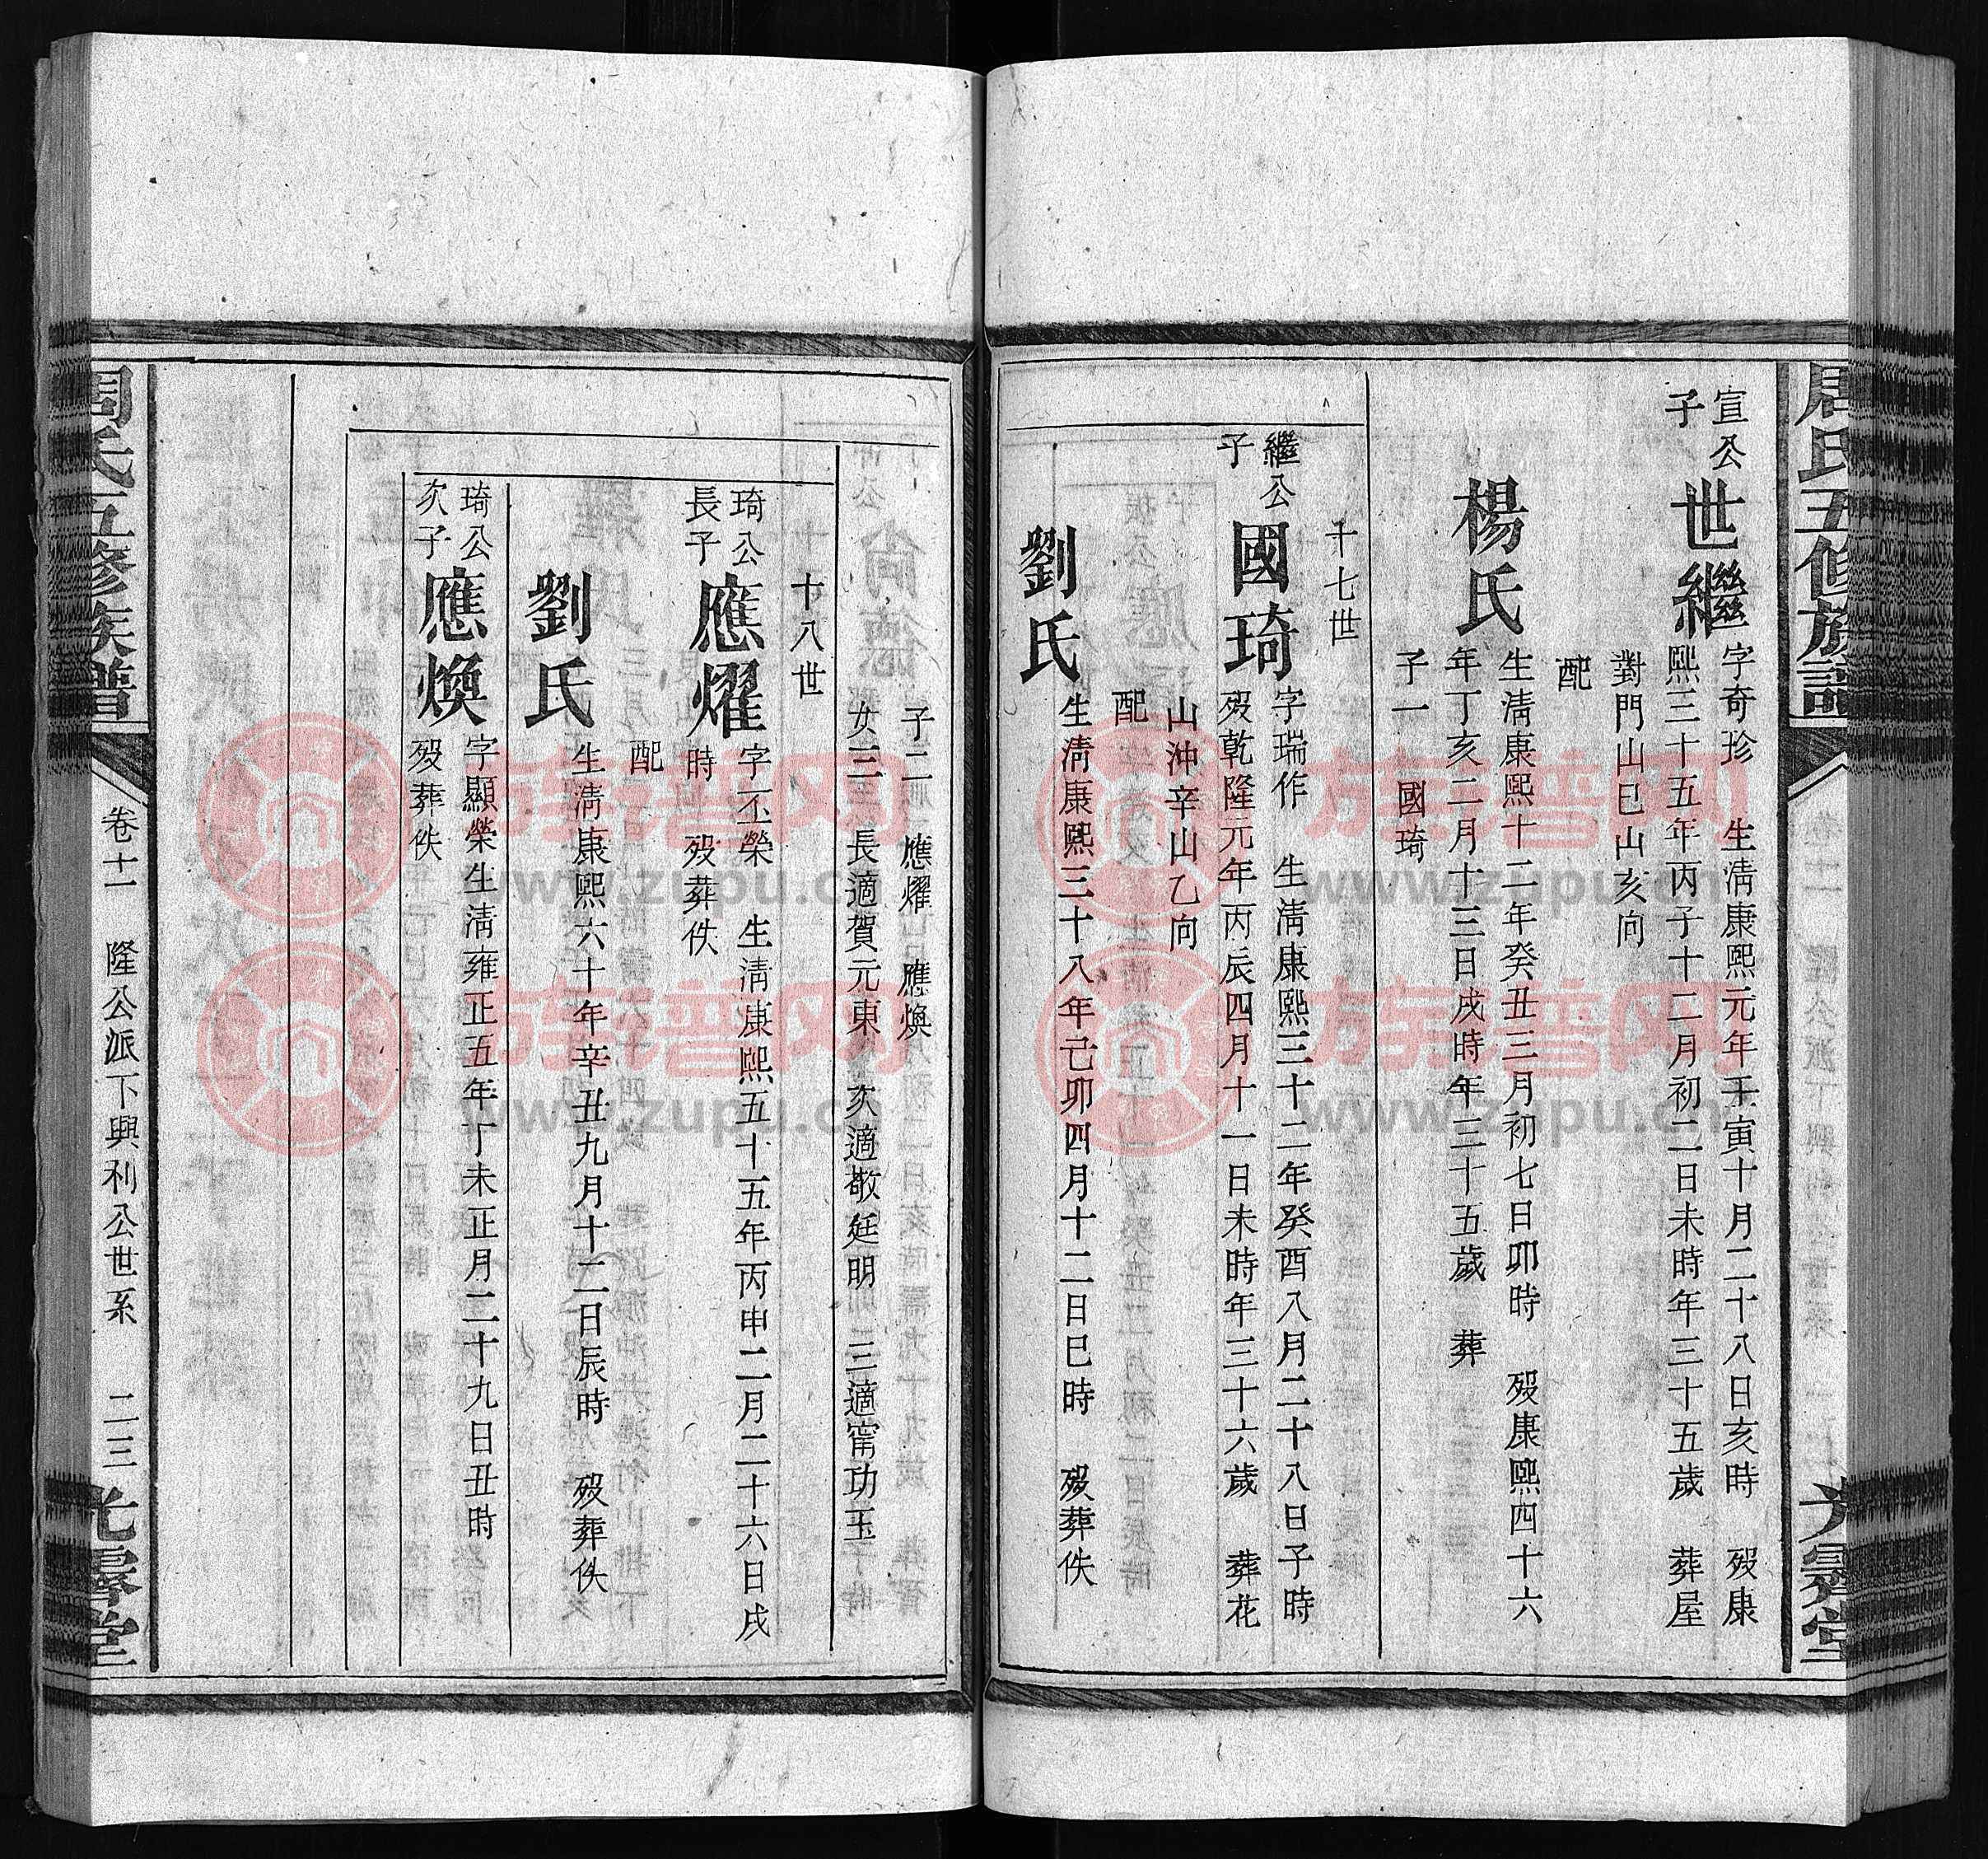 周氏五修族譜
光霽堂
宣公
子
世繼
字奇珍 生清康熙元年壬寅十月二十八日亥時 歿康
熙三十五年丙子十二月初二日未時年三十五歲 葬屋
對門山巳山亥向
配
楊氏
生清康熙十二年癸丑三月初七日卯時 歿康熙四十六
年丁亥二月十三日戌時年三十五歲 葬
子一 國琦
十七世
繼公
子
國琦
字瑞作 生清康熙三十二年癸酉八月二十八日子時
歿乾隆元年丙辰四月十一日未時年三十六歲 葬花
山沖辛山乙向
配
劉氏
生清康熙三十八年己卯四月十二日巳時 歿葬佚
子二 應燿 應煥
女三 長適賀元東 次適敬廷明 三適甯功玉
十八世
琦公
長子
應燿
字丕榮 生清康熙五十五年丙申二月二十六日戌
時 歿葬佚
配
劉氏
生清康熙六十年辛丑九月十二日辰時 歿葬佚
琦公
次子
應煥
字顯榮生清雍正五年丁未正月二十九日丑時
歿葬佚
周氏五修族譜
卷十一 隆公派下興利公世系 二三
光霽堂
族譜网
www.zupu.cn
族譜网
www.zupu.cn
族譜网
www.zupu.cn
族譜网
www.zupu.cn